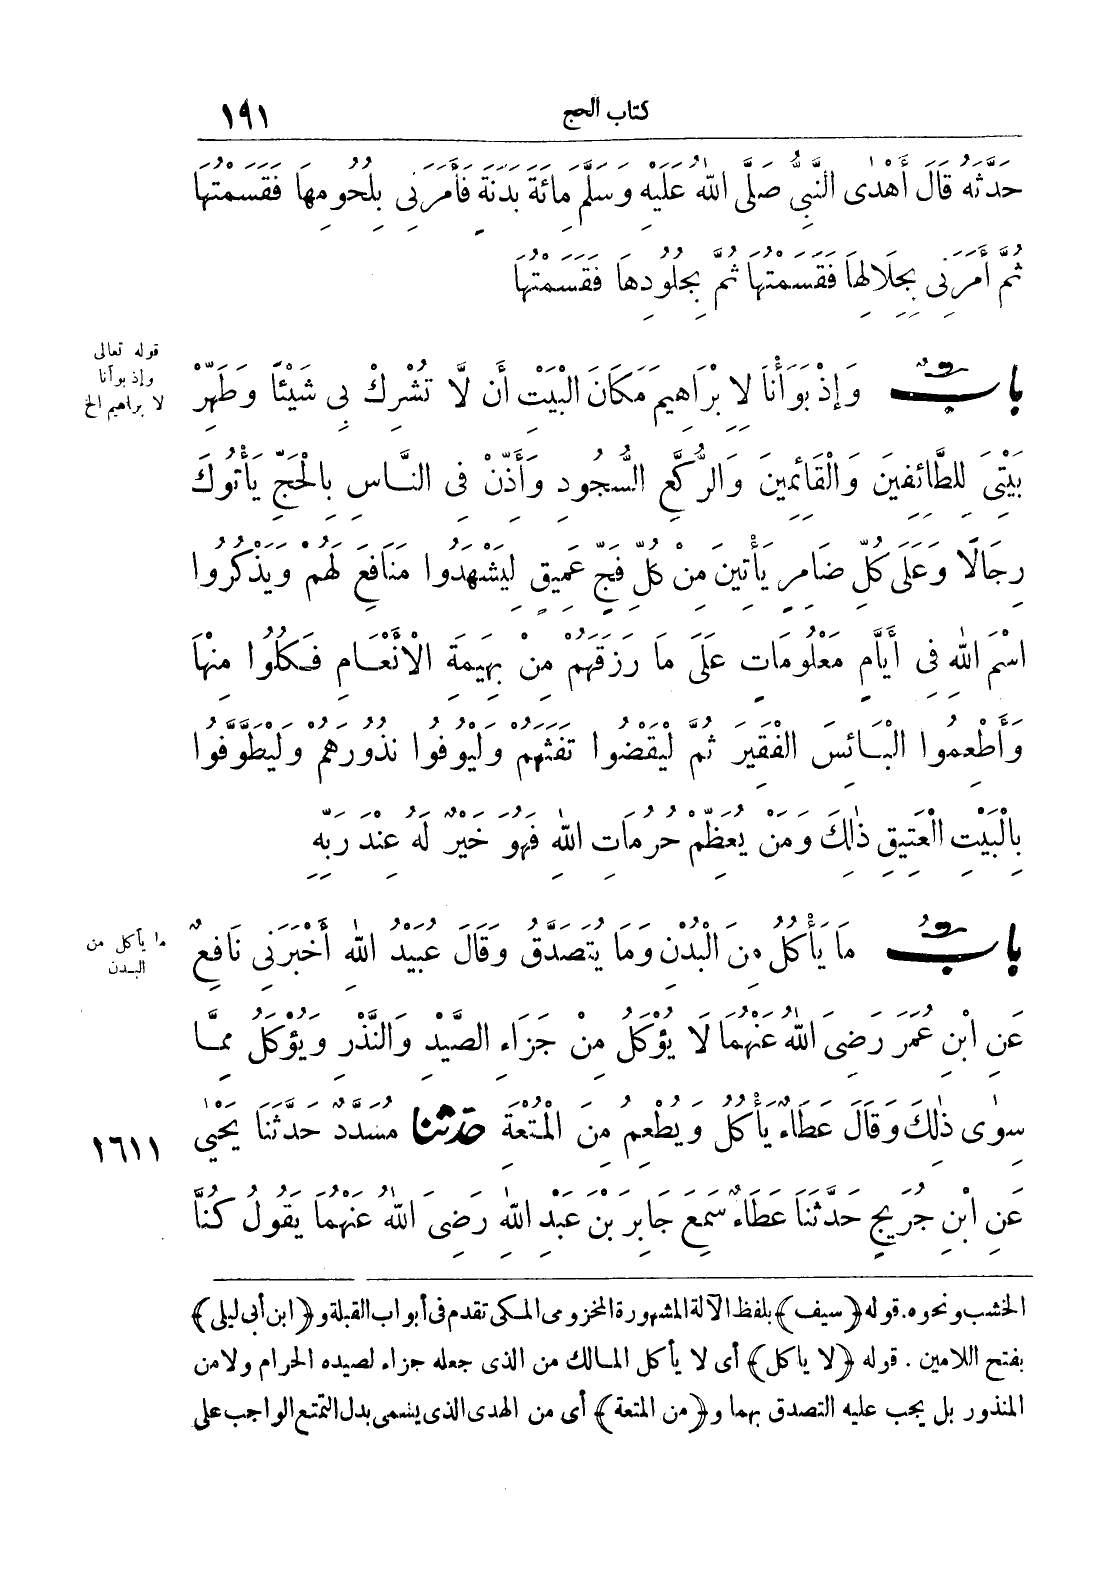 كتاب الحج
١٩١
حَدَّثَهُ قَالَ أَهْدَى النَّبِىُّ صَلَّى اللهُ عَلَيْهِ وَسَلَّمَ مِائَةَ بَدَنَةٍ فَأَمَرَنِى بِلُحُومِهَا فَقَسَمْتُهَا
ثُمَّ أَمَرَنِى بِجِلَالِهَا فَقَسَمْتُهَا ثُمَّ بِجُلُودِهَا فَقَسَمْتُهَا
قوله تعالى
وإذ بوأنا
لابراهيم الخ
بابٌ وَإِذْ بَوَّأْنَا لِإِبْرَاهِيمَ مَكَانَ الْبَيْتِ أَن لَّا تُشْرِكْ بِى شَيْئًا وَطَهِّرْ
بَيْتِىَ لِلطَّائِفِينَ وَالْقَائِمِينَ وَالرُّكَّعِ السُّجُودِ وَأَذِّنْ فِى النَّاسِ بِالْحَجِّ يَأْتُوكَ
رِجَالًا وَعَلَى كُلِّ ضَامِرٍ يَأْتِينَ مِنْ كُلِّ فَجٍّ عَمِيقٍ لِيَشْهَدُوا مَنَافِعَ لَهُمْ وَيَذْكُرُوا
اسْمَ اللهِ فِى أَيَّامٍ مَعْلُومَاتٍ عَلَى مَا رَزَقَهُمْ مِنْ بَهِيمَةِ الْأَنْعَامِ فَكُلُوا مِنْهَا
وَأَطْعِمُوا الْبَائِسَ الْفَقِيرَ ثُمَّ لْيَقْضُوا تَفَثَهُمْ وَلْيُوفُوا نُذُورَهُمْ وَلْيَطَّوَّفُوا
بِالْبَيْتِ الْعَتِيقِ ذٰلِكَ وَمَنْ يُعَظِّمْ حُرُمَاتِ اللهِ فَهُوَ خَيْرٌ لَهُ عِنْدَ رَبِّهِ
ما يأكل من
البدن
بابُ مَا يَأْكُلُ مِنَ الْبُدْنِ وَمَا يُتَصَدَّقُ وَقَالَ عُبَيْدُ اللهِ أَخْبَرَنِى نَافِعٌ
عَنِ ابْنِ عُمَرَ رَضِىَ اللهُ عَنْهُمَا لَا يُؤْكَلُ مِنْ جَزَاءِ الصَّيْدِ وَالنَّذْرِ وَيُؤْكَلُ مِمَّا
سِوٰى ذٰلِكَ وَقَالَ عَطَاءٌ يَأْكُلُ وَيُطْعِمُ مِنَ الْمُتْعَةِ حَدَّثَنَا مُسَدَّدٌ حَدَّثَنَا يَحْيٰى
١٦١١
عَنِ ابْنِ جُرَيْجٍ حَدَّثَنَا عَطَاءٌ سَمِعَ جَابِرَ بْنَ عَبْدِ اللهِ رَضِىَ اللهُ عَنْهُمَا يَقُولُ كُنَّا
الخشب ونحوه . قوله ﴿سيف﴾ بلفظ الآلة المشهورة المخزومى المكى تقدم فى أبواب القبلة و﴿ابن أبى ليلى﴾
بفتح اللامين . قوله ﴿لا ياكل﴾ أى لا يأكل المالك من الذى جعله جزاء لصيده الحرام ولا من
المنذور بل يجب عليه التصدق بهما و﴿من المتعة﴾ أى من الهدى الذى يسمى بدل التمتع الواجب على